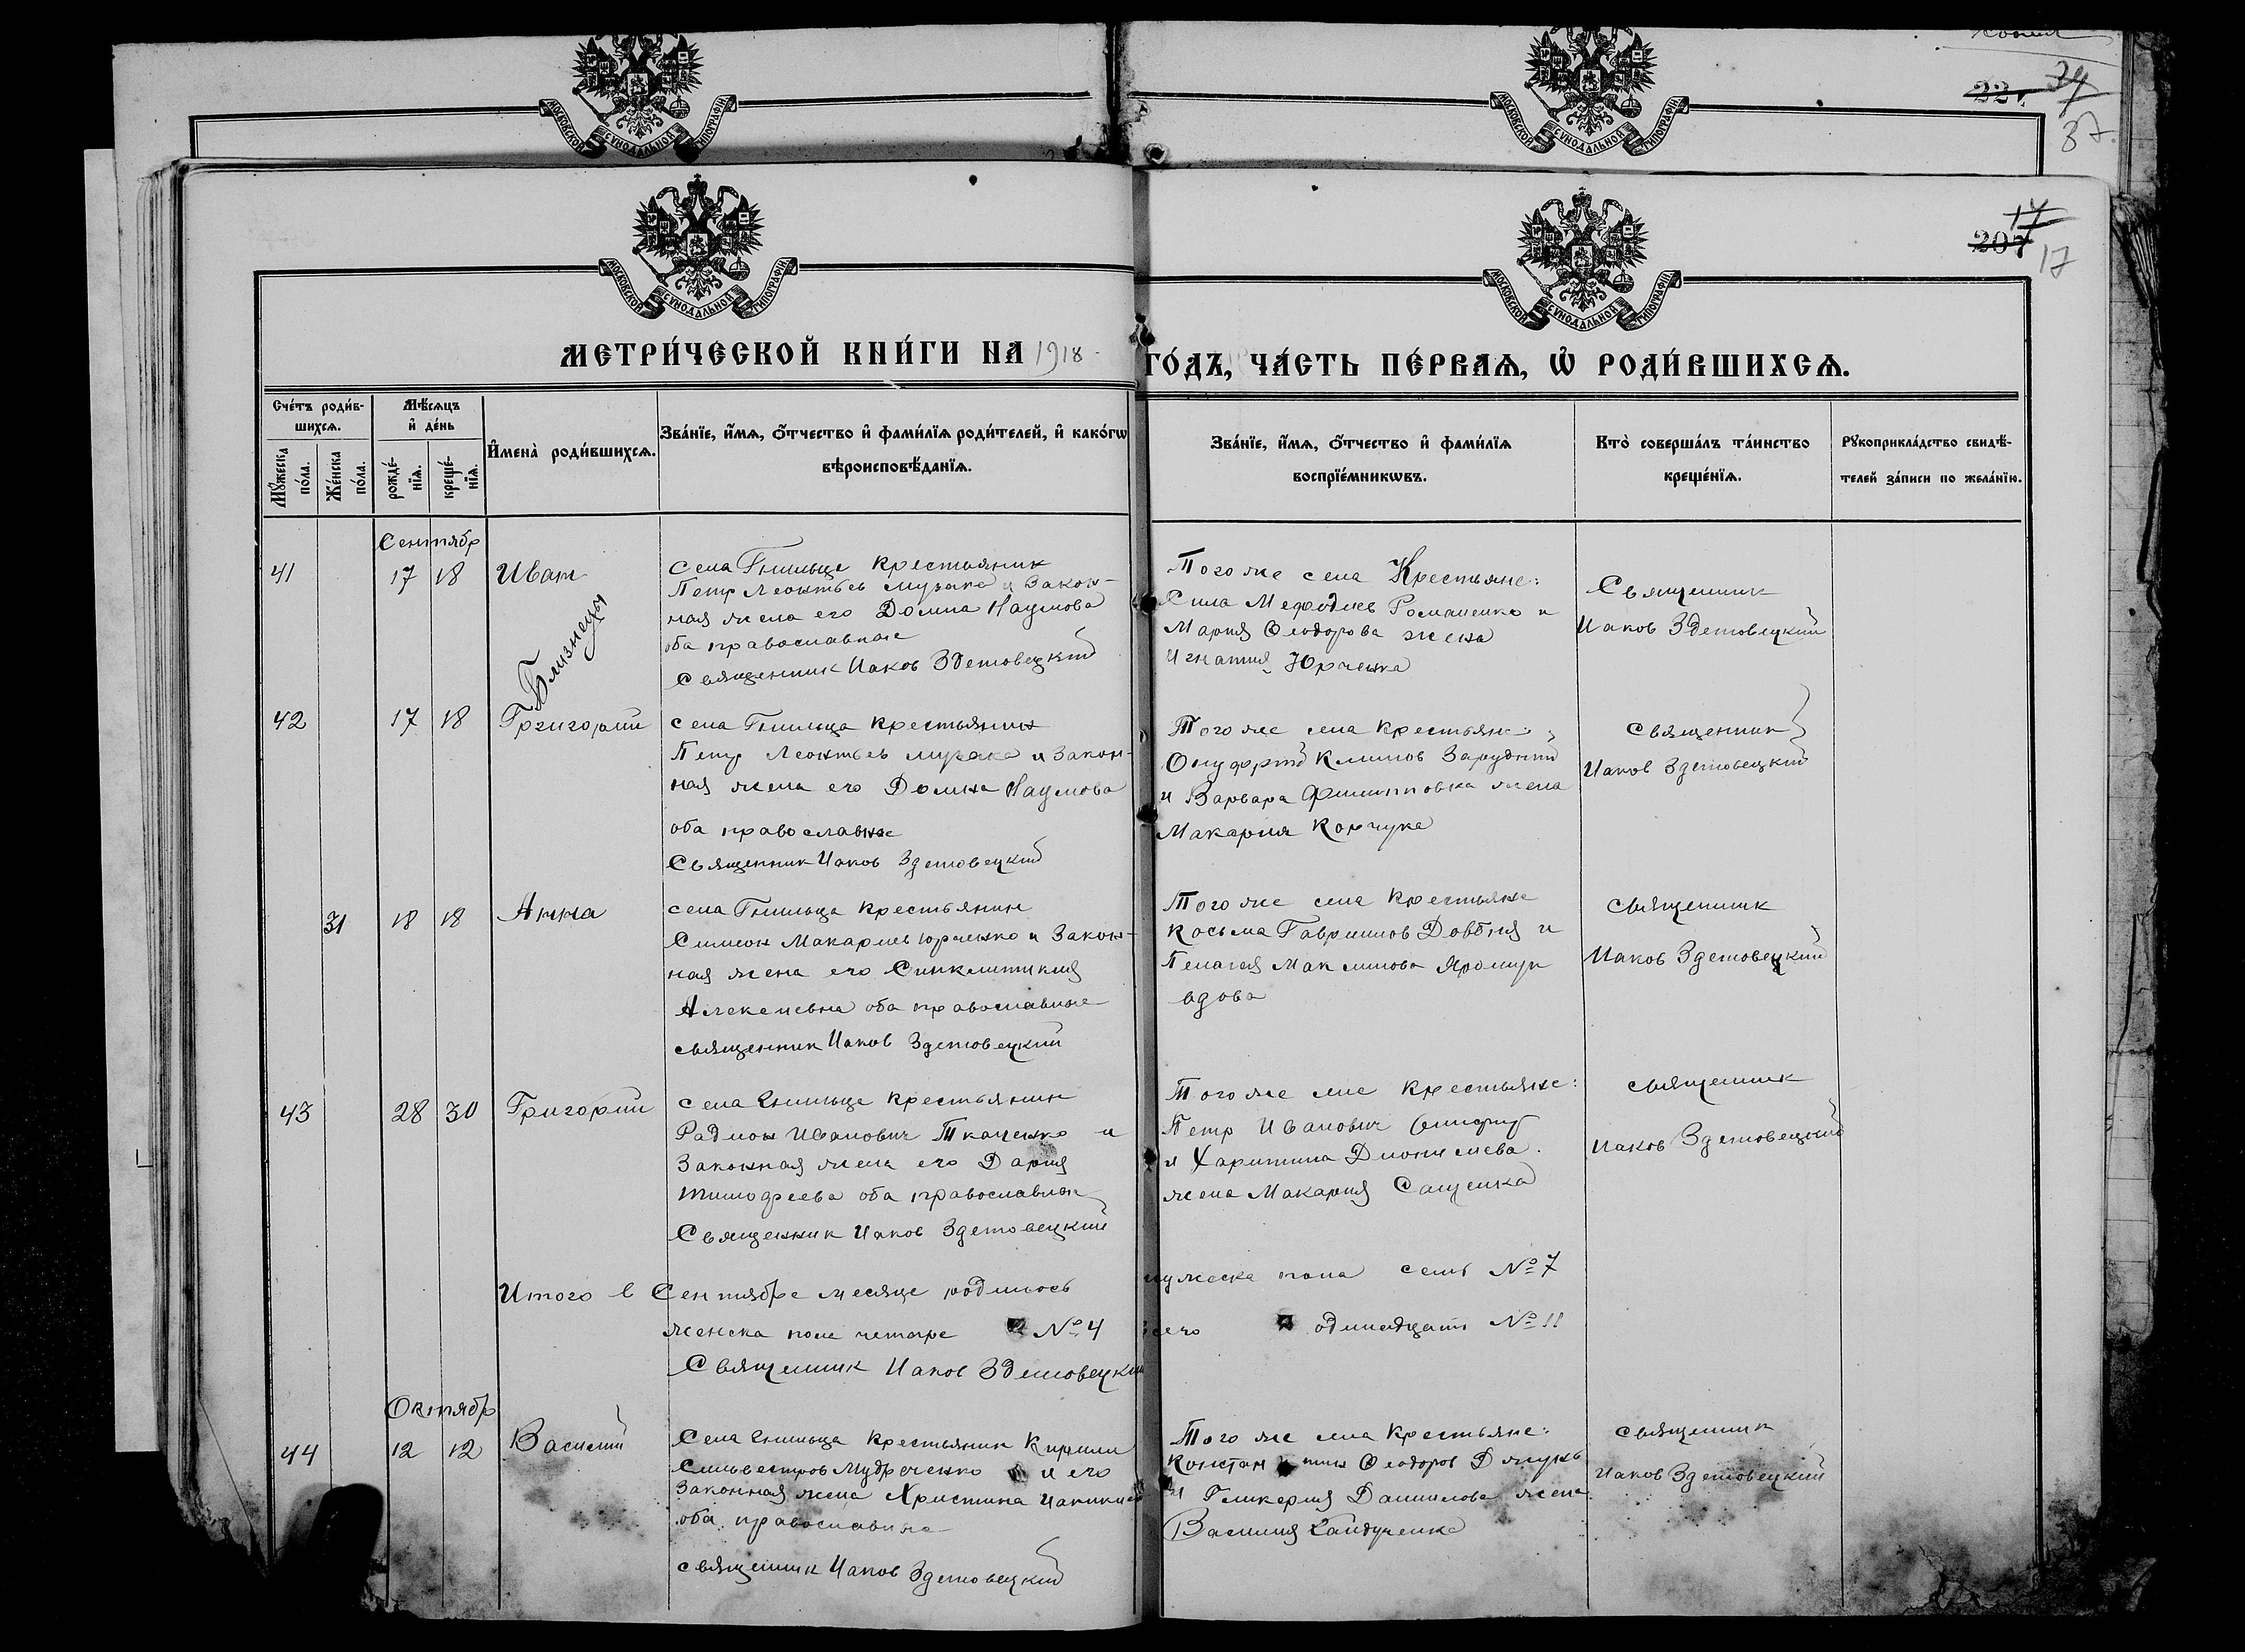 МОСКОВСКОЙ СѴНОДАЛЬНОЙ ТИПОГРАФІИ
МОСКОВСКОЙ СѴНОДАЛЬНОЙ ТИПОГРАФІИ
37
МОСКОВСКОЙ СѴНОДАЛЬНОЙ ТИПОГРАФІИ
МОСКОВСКОЙ СѴНОДАЛЬНОЙ ТИПОГРАФІИ
17
207 17
МЕТРИ́ЧЕСКОЙ КНИ́ГИ НА 1918 ГО́ДЪ, ЧА́СТЬ ПЕ́РВАѦ, Ѡ҆ РОДИ́ВШИХСѦ.
Сче́тъ роди́в-
шихсѧ.
Мꙋ́жеска по́ла.
Же́нска по́ла.
Мѣ́сѧцъ
и҆ де́нь
рожде́-нїѧ.
креще́-нїѧ.
И҆мена̀ роди́вшихсѧ.
Зва́нїе, и҆́мѧ, ѻ҆́тчество и҆ фами́лїѧ роди́телей, и҆ како́гѡ
вѣроисповѣ́данїѧ.
Зва́нїе, и҆́мѧ, ѻ҆́тчество и҆ фами́лїѧ
воспрїе́мникѡвъ.
Кто̀ соверша́лъ та́инство
креще́нїѧ.
Рꙋкоприкла́дство свидѣ́-
телей за́писи по жела́нїю.
Сентябр
41 17 18 Иван
Близнецы
села Гнильце крестьянин
Петр Леонтьев музыка и закон-
ная жена его Домна Наумова
оба православные
Священник Иаков Здетовецкий
Того же села Крестьяне:
Сила Мефодиев Романенко и
Мария Феодорова жена
Игнатия Юрченка
Священник
Иаков Здетовецкий
42 17 18 Григорий
села Гнильца крестьянин
Петр Леонтьев музыка и закон-
ная жена его Домна Наумова
оба православные
Священник Иаков Здетовецкий
Того же села крестьяне:
Онуфрий Климов Зарудний
и Варвара Филипповна жена
Макария Корчука
священник
Иаков Здетовецкий
31 18 18 Анна
села Гнильца крестьянин
Симеон Макариев Юрченко и закон-
ная жена его Синклитикия
Алексиевна оба православные
священник Иаков Здетовецкий
Того же села крестьяне
Косьма Гавриилов Довбня и
Пелагия Максимова
вдова
священник
Иаков Здетовецкий
43 28 30 Григорий
села Гнильце крестьянин
Радион Иванович Ткаченко и
законная жена его Дария
Тимофеева оба православные
Священник Иаков Здетовецкий
Того же села крестьяне:
Петр Иванович
и Харитина Дионисиева
жена Макария Сащенка
священник
Иаков Здетовецкий
Итого в Сентябре месяце родилось мужеска пола семь № 7
женска пола четыре № 4 всего одинадцать № 11
Священник Иаков Здетовецкий
Октябр
44 12 12 Василий
Села Гнильца крестьянин Кирилл
Сильвестров Мудреченко и его
законная жена Христина
оба православные
священник Иаков Здетовецкий
Того же села крестьяне:
Константин Феодоров
и Гликерия Даниилова жена
Василия Гайдученка
священник
Иаков Здетовецкий